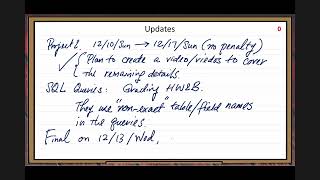 Updates
0
Project 2. 12/10/Sun → 12/17/Sun (no penalty)
Plan to create a video/viedos to cover
the remaining details.
SQL Queries: Grading HW2B.
They use "non-exact" table/field names
in the queries.
Final on 12/13/Wed,